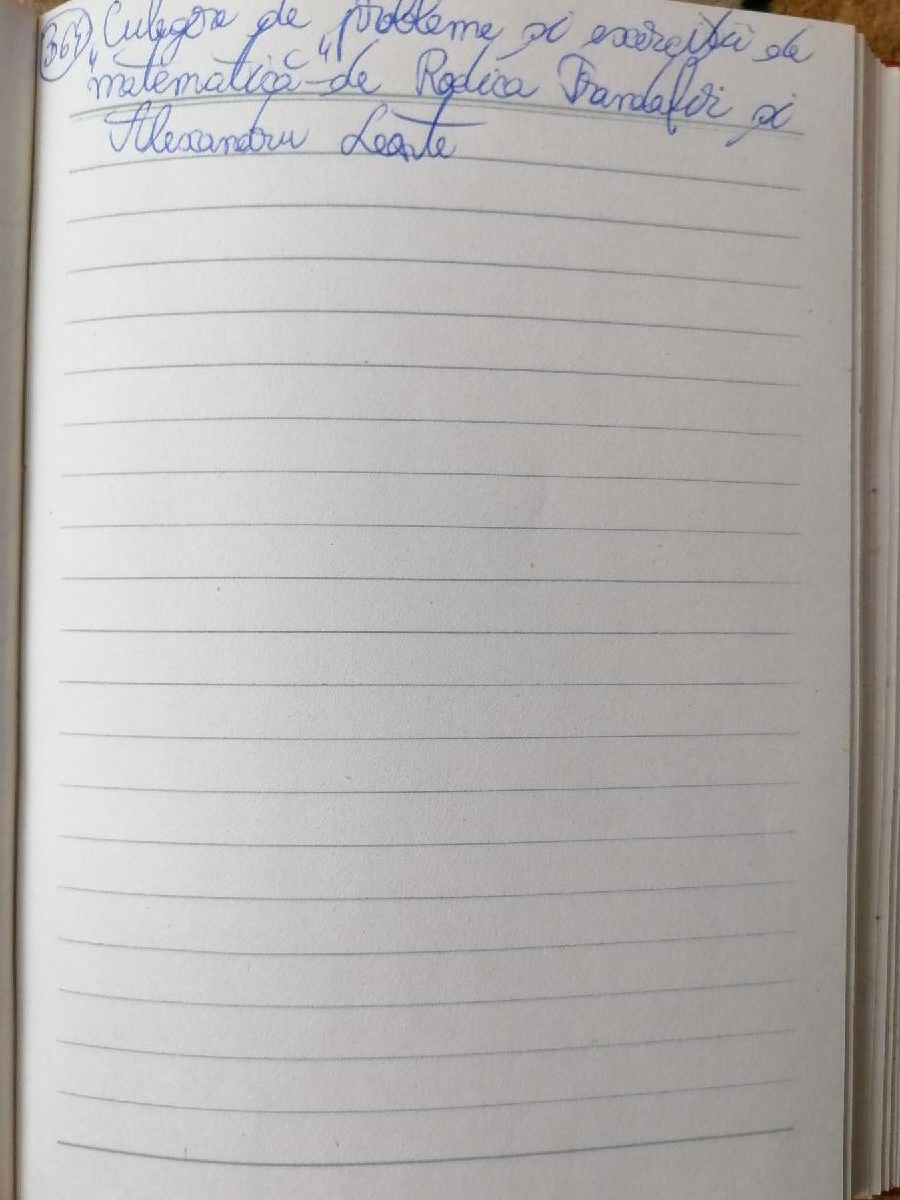 364) Culegere de probleme și exerciții de
„matematică“ de Rodica Trandafir și
Alexandru Leonte